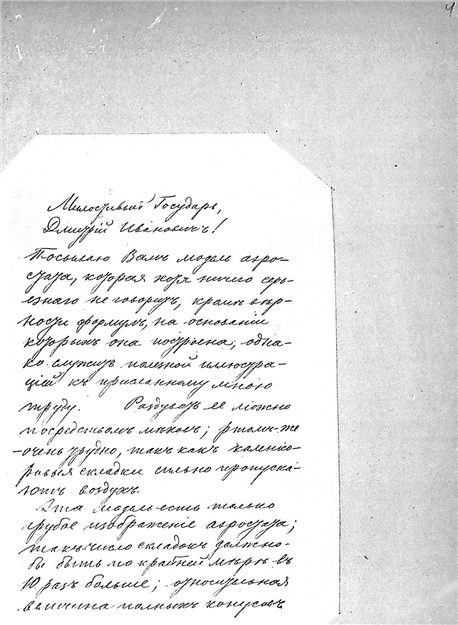 4
Милостивый Государь,
Дмитрій Ивановичъ!
Посылаю Вамъ модель аэро-
стата, которая хотя ничего серь-
езнаго не говоритъ, кромѣ вѣр-
ности формулъ, на основаніи
которыхъ она построена, одна-
ко служитъ полезной иллюстра-
ціей къ присланному мною
труду. Раздувать ее можно
посредствомъ мѣховъ; ртомъ-же
-очень трудно, такъ какъ
ровыя складки сильно пропуска-
ютъ воздухъ.
Эта модель есть только
грубое изображеніе аэростата;
такъ число складокъ должно-
бы быть по крайней мѣрѣ въ
10 разъ больше; относительная
величина полныхъ конусовъ